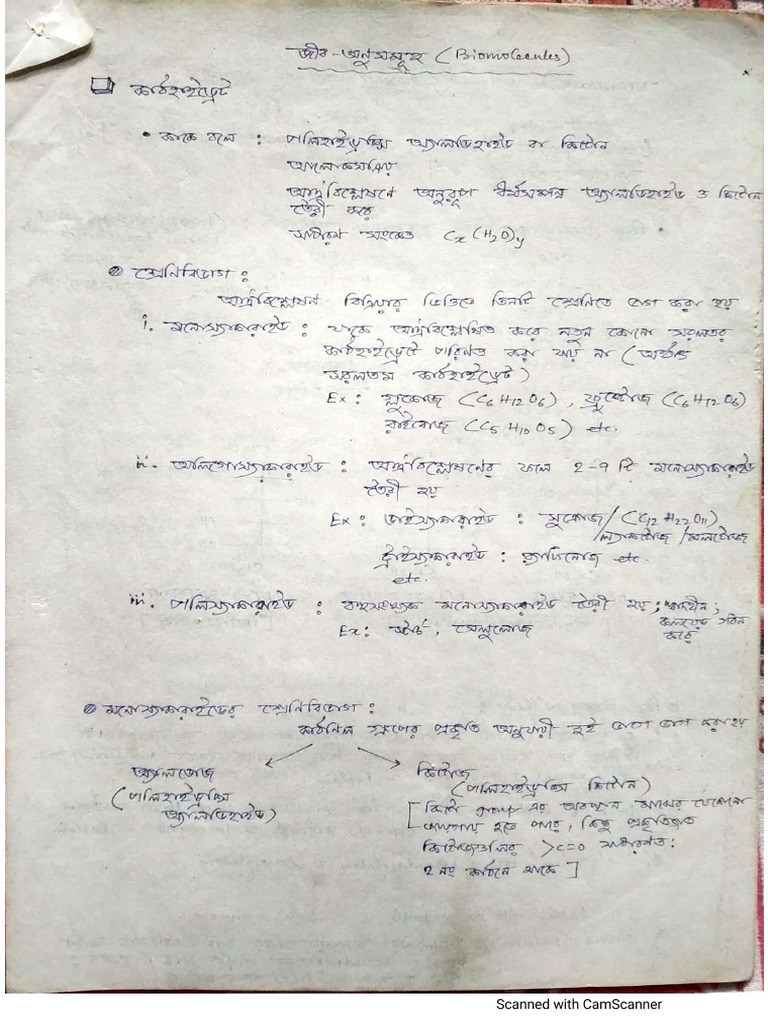 জীব-অনুসমূহ (Biomolecules)
কার্বহাইড্রেট
• কাকে বলে : পলিহাইড্রক্সি অ্যালডিহাইড বা কিটোন
আলোকসক্রিয়
আর্দ্রবিশ্লেষণে অনুরূপ ধর্মসম্পন্ন অ্যালডিহাইড ও কিটোন
তৈরী করে
সাধারণ সংকেত Cx(H2O)y
শ্রেণিবিভাগ :
আর্দ্রবিশ্লেষণ বিক্রিয়ার ভিত্তিতে তিনটি শ্রেণিতে ভাগ করা হয়
i. মনোস্যাকারাইড : যাকে আর্দ্রবিশ্লেষিত করে নতুন কোনো সরলতর
কার্বহাইড্রেটে পরিণত করা যায় না (অর্থাৎ
সরলতম কার্বহাইড্রেট)
Ex : গ্লুকোজ (C6H12O6), ফ্রুক্টোজ (C6H12O6)
রাইবোজ (C5H10O5) etc.
ii. অলিগোস্যাকারাইড : আর্দ্রবিশ্লেষণের ফলে 2-9 টি মনোস্যাকারাইড
তৈরী হয়
Ex : ডাইস্যাকারাইড : সুক্রোজ/(C12H22O11)
/ল্যাকটোজ/মলটোজ
ট্রাইস্যাকারাইড : র‍্যাফিনোজ etc.
etc.
iii. পলিস্যাকারাইড : বহুসংখ্যক মনোস্যাকারাইড তৈরী হয়; স্বাদহীন;
কলয়েড গঠন
করে
Ex : স্টার্চ, সেলুলোজ
মনোস্যাকারাইডের শ্রেণিবিভাগ :
কার্বনিল গ্রুপের প্রকৃতি অনুযায়ী দুই ভাগে ভাগ করা হয়
অ্যালডোজ
(পলিহাইড্রক্সি
অ্যালডিহাইড)
কিটোজ
(পলিহাইড্রক্সি কিটোন)
[কিটো group এর অবস্থান মাঝের যেকোনো
জায়গায় হতে পারে, কিন্তু প্রকৃতিজাত
কিটোজগুলির >C=O সাধারণত:
2 নং কার্বনে থাকে]
Scanned with CamScanner